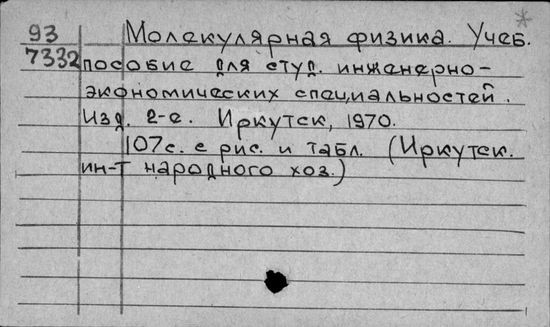 93 Молекулярная физика. Учеб.
7332 пособие для студ. инженерно-
экономических специальностей.
Изд. 2-е. Иркутск, 1970.
107с. с рис. и табл. (Иркутск.
ин-т народного хоз.)